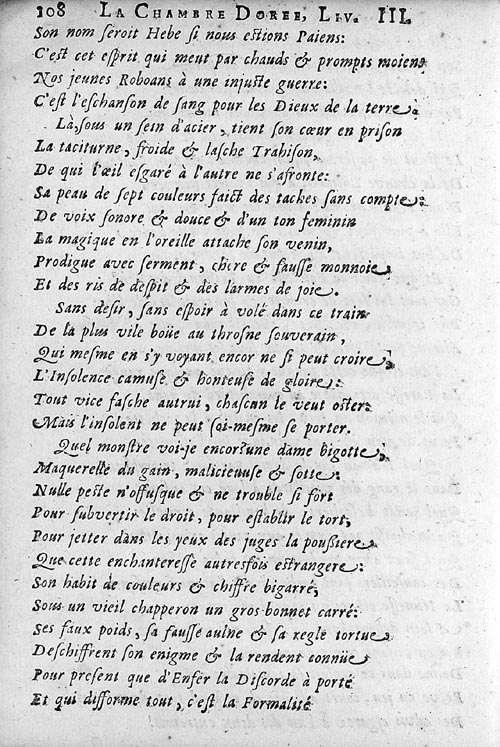 108 LA CHAMBRE DOREE, LIV. III.
Son nom seroit Hebe si nous estions Paiens:
C'est cet esprit qui meut par chauds & prompts moiens
Nos jeunes Roboans à une injuste guerre:
C'est l'eschanson de sang pour les Dieux de la terre.
Là, sous un sein d'acier, tient son cœur en prison
La taciturne, froide & lasche Trahison,
De qui l'œil esgaré à l'autre ne s'afronte:
Sa peau de sept couleurs faict des taches sans compte:
De voix sonore & douce & d'un ton feminin
La magique en l'oreille attache son venin,
Prodigue avec serment, chere & fausse monnoie,
Et des ris de despit & des larmes de joie.
Sans desir, sans espoir à volé dans ce train
De la plus vile boüe au throsne souverain,
Qui mesme en s'y voyant encor ne si peut croire,
L'Insolence camuse & honteuse de gloire:
Tout vice fasche autrui, chascun le veut oster:
Mais l'insolent ne peut soi-mesme se porter.
Quel monstre voi-je encor? une dame bigotte,
Maquerelle du gain, malicieuse & sotte:
Nulle peste n'offusque & ne trouble si fort
Pour subvertir le droit, pour establir le tort,
Pour jetter dans les yeux des juges la poussiere,
Que cette enchanteresse autresfois estrangere:
Son habit de couleurs & chiffre bigarré,
Sous un vieil chapperon un gros bonnet carré:
Ses faux poids, sa fausse aulne & sa regle tortue
Deschiffrent son enigme & la rendent connüe
Pour present que d'Enfer la Discorde à porté
Et qui difforme tout, c'est la Formalité